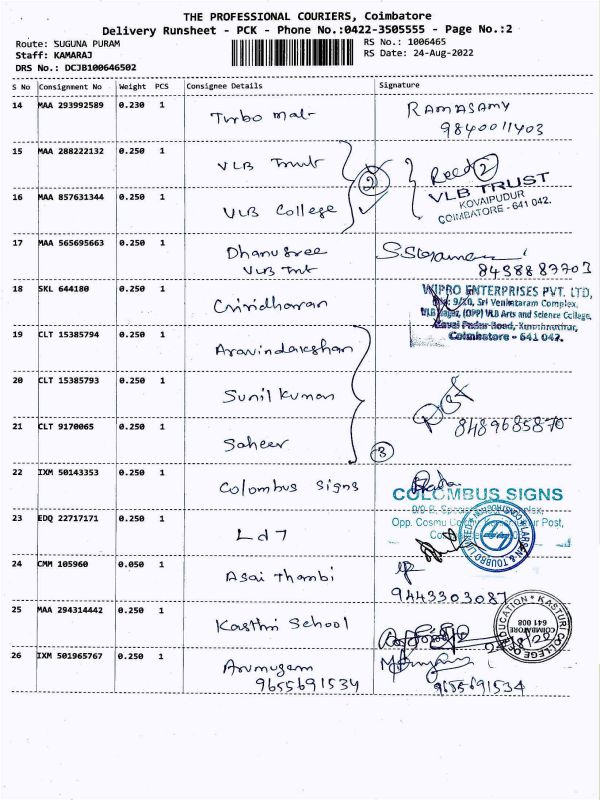 THE PROFESSIONAL COURIERS, Coimbatore
Delivery Runsheet - PCK - Phone No.:0422-3505555 - Page No.:2
Route: SUGUNA PURAM RS No.: 1006465
Staff: KAMARAJ RS Date: 24-Aug-2022
DRS No.: DCJB100646502
S No Consignment No Weight PCS Consignee Details Signature
14 MAA 293992589 0.230 1 Turbo mat RAMASAMY
9840011403
15 MAA 288222132 0.250 1 VLB Trust Recd 2
2 VLB TRUST
KOVAIPUDUR
16 MAA 857631344 0.250 1 VLB College COIMBATORE - 641 042.
17 MAA 565695663 0.250 1 Dhanusree
VLB Trust 8438887703
18 SKL 644180 0.250 1 WIPRO ENTERPRISES PVT. LTD,
9/20, Sri Venkataram Complex,
VLB Nagar, (OPP) VLB Arts and Science College,
Kovai Pudur Road,
Coimbatore - 641 042.
19 CLT 15385794 0.250 1 Aravindakshan
20 CLT 15385793 0.250 1 Sunil Kumar
21 CLT 9170065 0.250 1 Saheer 8489685870
3
22 IXM 50143353 0.250 1 Colombus Signs
COLOMBUS SIGNS
23 EDQ 22717171 0.250 1 L d T Opp. Cosmu Post,
LARSEN & TOUBRO LIMITED
24 CMM 105960 0.050 1 Asai Thambi
9443303087
25 MAA 294314442 0.250 1 Kasthri School
KASTURI COLLEGE OF EDUCATION
COIMBATORE
641 008
26 IXM 501965767 0.250 1 Arumugam
9655691534 9655691534